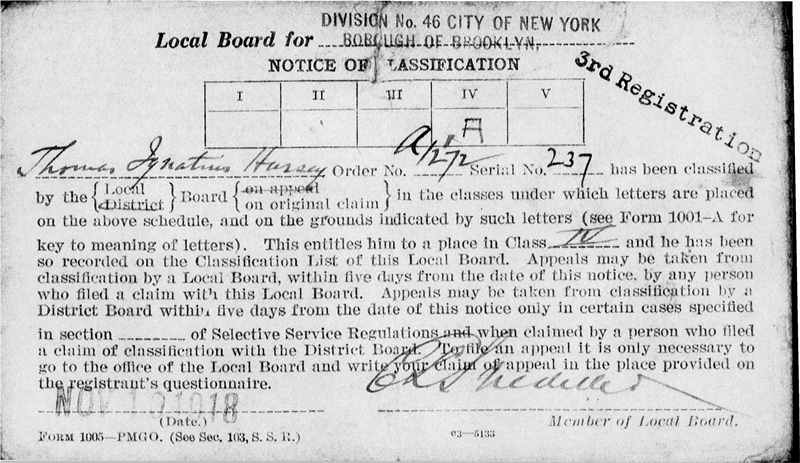 DIVISION No. 46 CITY OF NEW YORK
Local Board for BOROUGH OF BROOKLYN,
NOTICE OF CLASSIFICATION
3rd Registration
I II III IV V
A
Thomas Ignatius Order No. A1272 Serial No. 237 has been classified
by the {Local District} Board {on appeal on original claim} in the classes under which letters are placed
on the above schedule, and on the grounds indicated by such letters (see Form 1001-A for
key to meaning of letters). This entitles him to a place in Class IV and he has been
so recorded on the Classification List of this Local Board. Appeals may be taken from
classification by a Local Board, within five days from the date of this notice, by any person
who filed a claim with this Local Board. Appeals may be taken from classification by a
District Board within five days from the date of this notice only in certain cases specified
in section of Selective Service Regulations and when claimed by a person who filed
a claim of classification with the District Board. To file an appeal it is only necessary to
go to the office of the Local Board and write your claim of appeal in the place provided on
the registrant's questionnaire.
NOV 1918
(Date.) Member of Local Board.
FORM 1005—PMGO. (See Sec. 103, S. S. R.) 03—5133